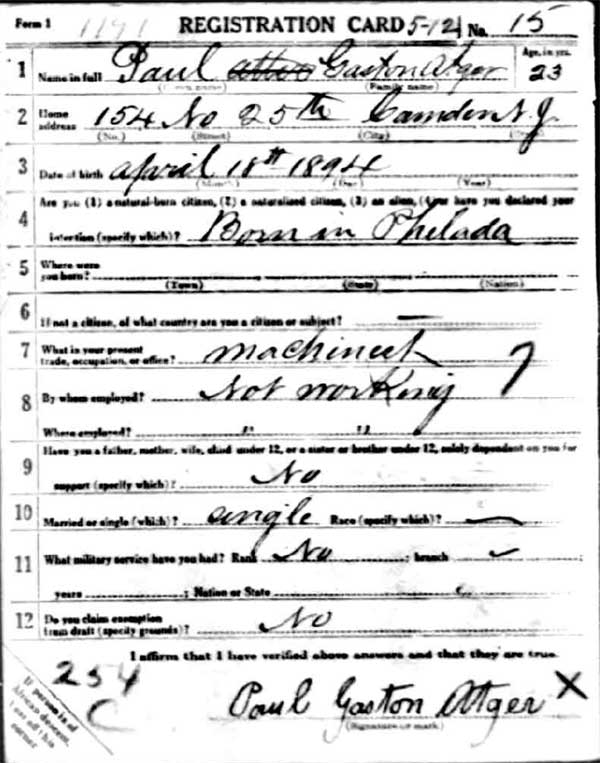 Form 1 1191 REGISTRATION CARD 5-121 No. 15
1 Name in full Paul Gaston Atger Age, in yrs. 23
(Given name) (Family name)
2 Home address 154 No 25th Camden N.J.
(No.) (Street) (City)
3 Date of birth April 18th 1894
(Month) (Day) (Year)
4 Are you (1) a natural-born citizen, (2) a naturalized citizen, (3) an alien, (4) or have you declared your
intention (specify which)? Born in Philada
5 Where were you born?
(Town) (State) (Nation)
6 If not a citizen, of what country are you a citizen or subject? —
7 What is your present trade, occupation, or office? machinest 7
8 By whom employed? Not working
Where employed? " "
9 Have you a father, mother, wife, child under 12, or a sister or brother under 12, solely dependent on you for
support (specify which)? No
10 Married or single (which)? single Race (specify which)? —
11 What military service have you had? Rank No ; branch
years ; Nation or State
12 Do you claim exemption from draft (specify grounds)? No
I affirm that I have verified above answers and that they are true.
254
C
Paul Gaston Attger X
(Signature or mark)
If person is of
African descent,
tear off this
corner